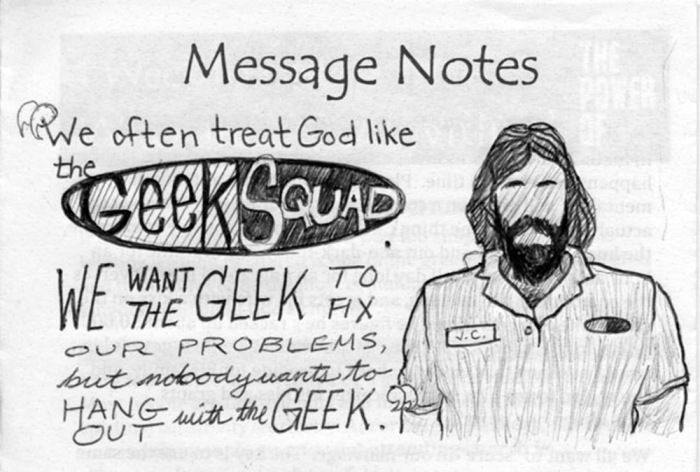 Message Notes
“We often treat God like
the GEEK SQUAD.
WE WANT THE GEEK TO FIX
OUR PROBLEMS,
but nobody wants to
HANG OUT with the GEEK”
J.C.